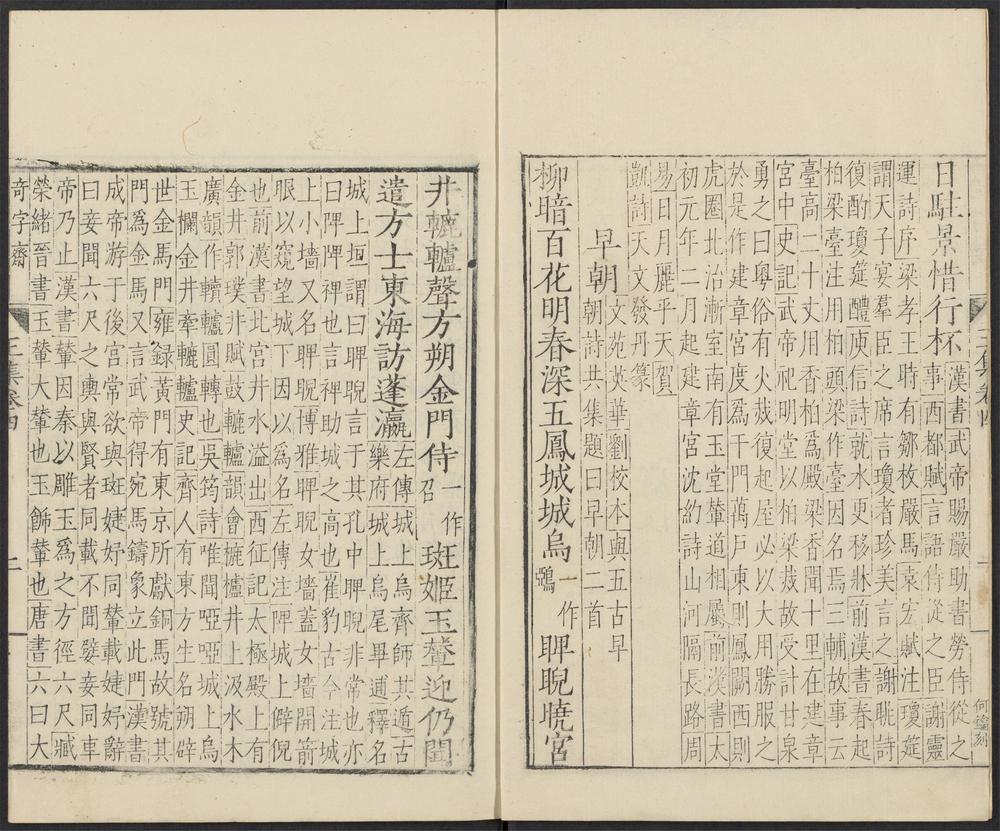 日駐景惜行杯漢書武帝賜嚴助書勞侍從之
事西都賦言語侍從之臣謝靈
運詩序梁孝王時有鄒枚嚴馬袁宏賦注瓊筵
謂天子宴羣臣之席言瓊者珍美言之謝眺詩
復酌瓊筵醴庾信詩就水更移牀前漢書春起
柏梁臺注用柏頭梁作臺因名焉三輔故事云
臺高二十丈用香柏爲殿梁香聞十里在建章
宮中史記武帝祀明堂以柏梁烖故受計甘泉
勇之曰粤俗有火烖復起屋必以大用勝服之
於是作建章宮度爲千門萬戸東則鳳闕西則
虎圈北治漸室南有玉堂輦道相屬前漢書太
初元年二月起建章宮沈約詩山河隔長路周
易日月麗乎天賀
凱詩天文發丹篆
早朝文苑英華劉校本與五古早
朝詩共集題曰早朝二首
柳暗百花明春深五鳳城城烏一作鵶睥睨曉宮
井轆轤聲方朔金門侍一作召班姬玉輦迎仍聞
遣方士東海訪蓬瀛左傳城上烏齊師其遁古
樂府城上烏尾畢逋釋名
城上垣謂曰睥睨言于其孔中睥睨非常也亦
曰陴陴裨也言裨助城之高也崔豹古今注城
上小墻又名睥睨博雅睥睨女墻蓋女墻開箭
眼以窺望城下因以爲名左傳注陴城上僻倪
也前漢書北宮井水溢出西征記太極殿上有
金井郭璞井賦鼓轆轤韻會樚櫨井上汲水木
廣韻作轒轤圓轉也吳筠詩唯聞啞啞城上烏
玉欄金井牽轆轤史記齊人有東方生名朔辟
世金馬門雍録黃門有東京所獻銅馬故號其
門爲金馬又言武帝得宛馬鑄象立此門漢書
成帝游于後宮常欲與班婕妤同輦載婕妤辭
曰妾聞六尺之輿與賢者同載不聞嬖妾同車
帝乃止漢書輦因秦以雕玉爲之方徑六尺臧
榮緒晉書玉輦大輦也玉飾輦也唐書六曰大
奇字齋
王集卷四
二